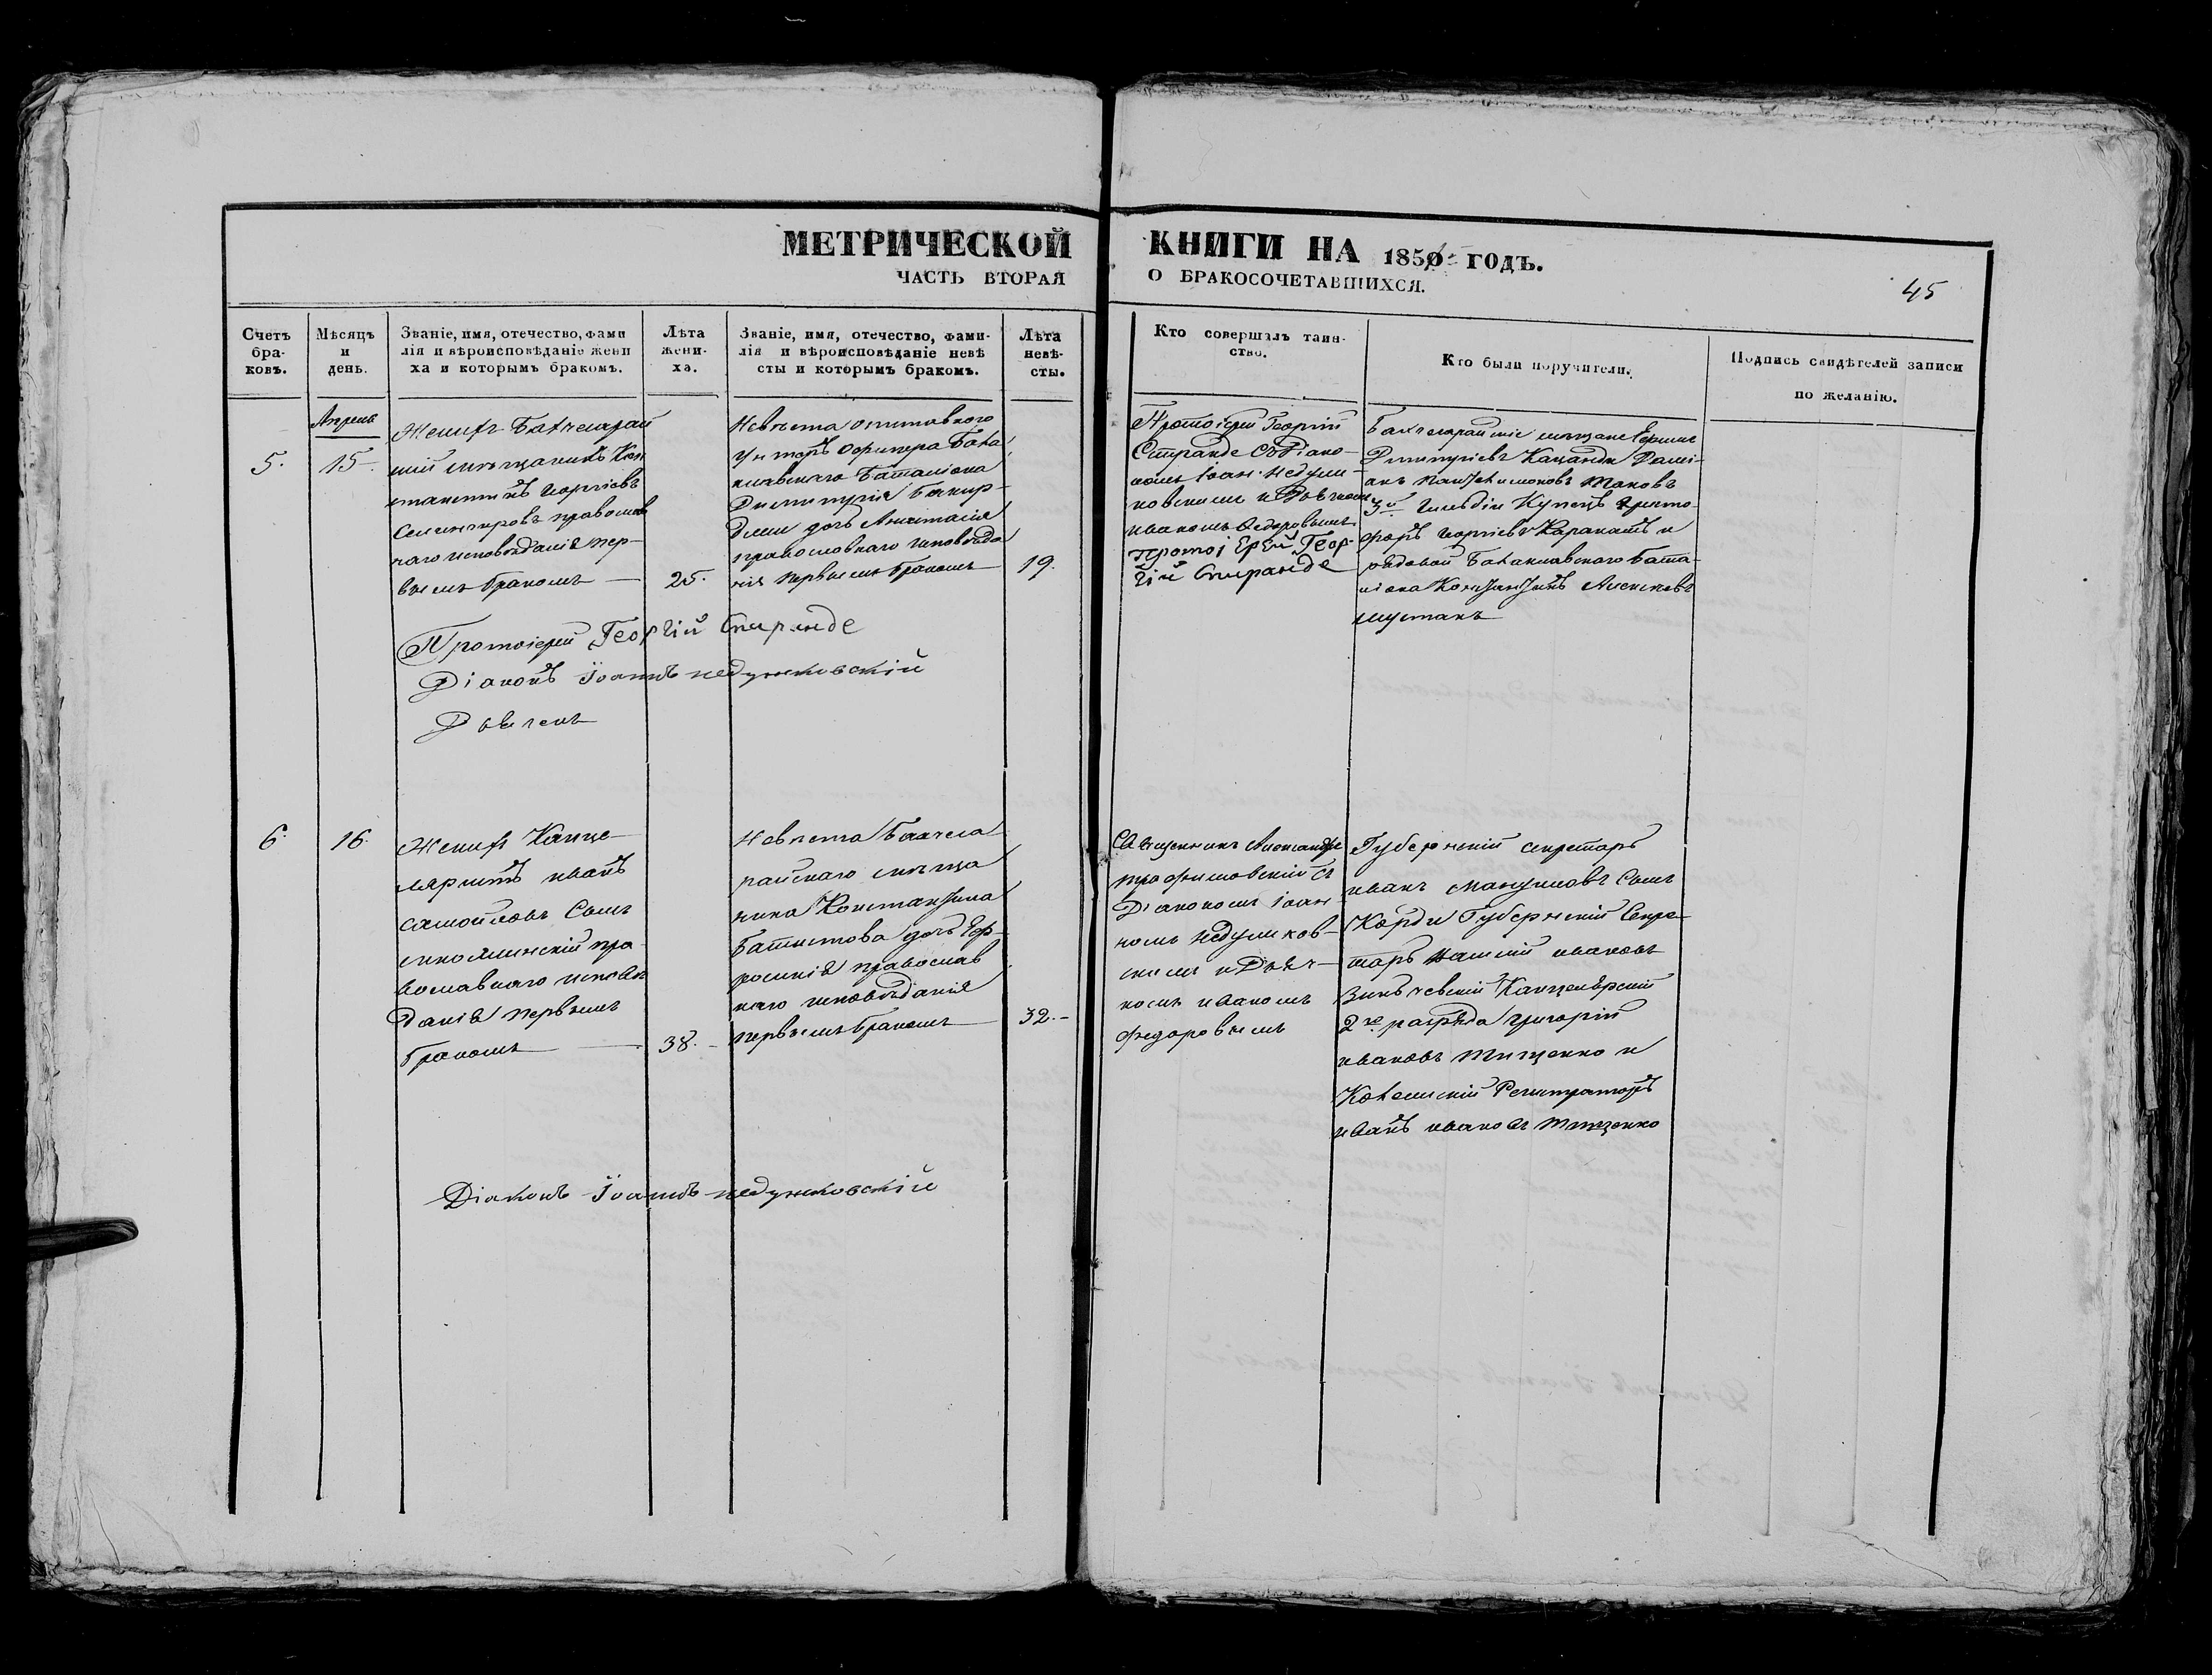 МЕТРИЧЕСКОЙ
ЧАСТЬ ВТОРАЯ
КНИГИ НА 185 ГОДЪ.
О БРАКОСОЧЕТАВШИХСЯ.
45
Счетъ
бра-
ковъ.
Мѣсяцъ
и
день.
Званіе, имя, отечество, фами
лія и вѣроисповѣданіе жени
ха и которымъ бракомъ.
Лѣта
жени-
ха.
Званіе, имя, отечество, фами-
лія и вѣроисповѣданіе невѣ
сты и которымъ бракомъ.
Лѣта
невѣ-
сты.
Кто совершалъ таин-
ство.
Кто были поручители.
Подпись свидѣтелей записи
по желанію.
Апрель
5.
15.
Женихъ Бахчисарай
скій мѣщанинъ Кон
стантинъ Георгіевъ
православ
наго исповѣданія пер-
вымъ бракомъ
25.
Невѣста отставного
Унтеръ Офицера Бала
клавскаго Баталіона
Димитрія
дочь Анастасія
православнаго исповѣда
нія первымъ бракомъ
19.
Протоіерей Георгій
Спиранде съ Діако-
номъ Іоан. Недзли-
ковскимъ и Дьячкомъ
Иваномъ Федоровымъ
Протоіерей Геор-
гій Спиранде
Бахчисарайскіе мѣщане
Димитріевъ
3й Гильдіи Купецъ Христо-
форъ Георгіевъ и
рядовой Балаклавскаго Бата-
ліона Константинъ Алексѣевъ
Протоіерей Георгій Спиранде
Діаконъ Іоаннъ Недзликовскій
Дьячекъ
6.
16.
Женихъ Канце-
ляристъ Иванъ
Самойловъ Сынъ
пра
вославнаго исповѣ
данія первымъ
бракомъ
38.
Невѣста Бахчиса
райскаго мѣща
нина Константина
дочь Еф-
росинія православ
наго исповѣданія
первымъ бракомъ
32.
Священникъ Александръ
Трофимовскій съ
Діакономъ Іоан
номъ Недзликов-
скимъ и Дьяч-
комъ Иваномъ
Федоровымъ
Губернскій Секретарь
Иванъ Мануиловъ Сынъ
Корди Губернскій Секре-
тарь Ивановъ
Канцелярскій
2го разряда Григорій
Ивановъ Тищенко и
Колежскій Регистраторъ
Иванъ Ивановъ Тищенко
Діаконъ Іоаннъ Недзликовскій